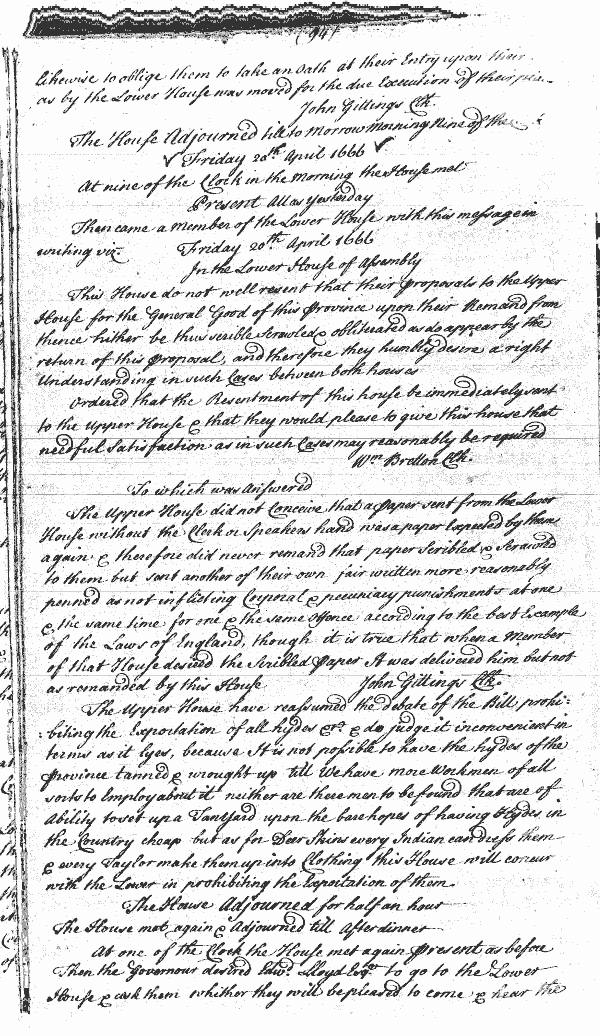 (94)
likewise to oblige them to take an Oath at their Entry upon their
as by the Lower House was moved for the due Execution of their
John Gittings Clk.
The House Adjourned till to Morrow Morning Nine of the
Friday 20th April 1666
At nine of the Clock in the Morning the House met
Present All as Yesterday
Then came a Member of the Lower House with this message in
writing viz. Friday 20th April 1666
In the Lower House of Assembly
This House do not well resent that their Proposals to the Upper
House for the General Good of this Province upon their Remand from
thence hither be thus scrible Scrawled & obliterated as do appear by the
return of this Proposal, and therefore they humbly desire a right
Understanding in such Cases between both houses
Ordered that the Resentment of this house be immediately sent
to the Upper House & that they would please to give this house that
needful Satisfaction as in such Cases may reasonably be required
Wm Bretton Clk.
To which was Answered
The Upper House did not Conceive that a Paper sent from the Lower
House without the Clerk or Speakers hand was a paper Expected by them
again & therefore did never remand that paper Scribled & Scrawld
to them but sent another of their own fair written more reasonably
penned as not inflicting Corporal & pecuniary punishments at one
& the same time for one & the same Offence according to the best Example
of the Laws of England, though it is true that when a Member
of that House desired the Scribled Paper It was delivered him but not
as remanded by this House John Gittings Clk.
The Upper House have reassumed the debate of the Bill, prohi-
biting the Exportation of all hydes &c. & do judge it inconvenient in
terms as it lyes, because It is not possible to have the hydes of the
Province tanned & wrought up till We have more Workmen of all
sorts to Employ about it neither are there men to be found that are of
Ability to set up a Tanyard upon the bare hopes of having Hydes in
the Country cheap but as for Deer Skins every Indian can dress them
& every Taylor make them up into Clothing this House will concur
with the Lower in prohibiting the Exportation of them.
The House Adjourned for half an hour
The House met again & Adjourned till After dinner
At one of the Clock the House met again Present as before
Then the Governour desired Edwd. Lloyd Esqr. to go to the Lower
House & ask them whether they will be pleased to come & hear the